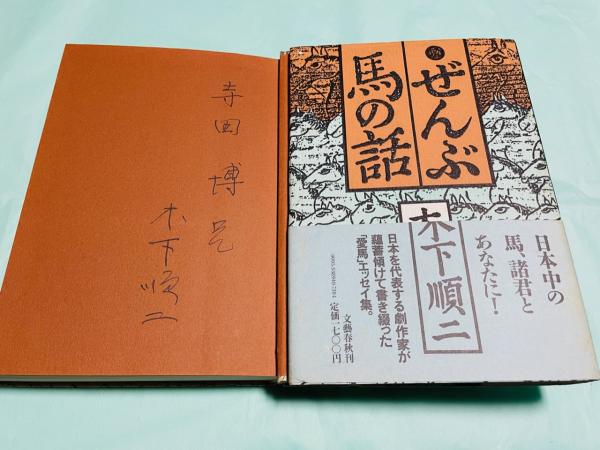 寺田博兄
木下順二
ぜんぶ
馬の話
木下順二
日本中の
馬、諸君と
あなたに!
日本を代表する劇作家が
蘊蓄傾けて書き綴った
「愛馬」エッセイ集。
文藝春秋刊
定価一七〇〇円